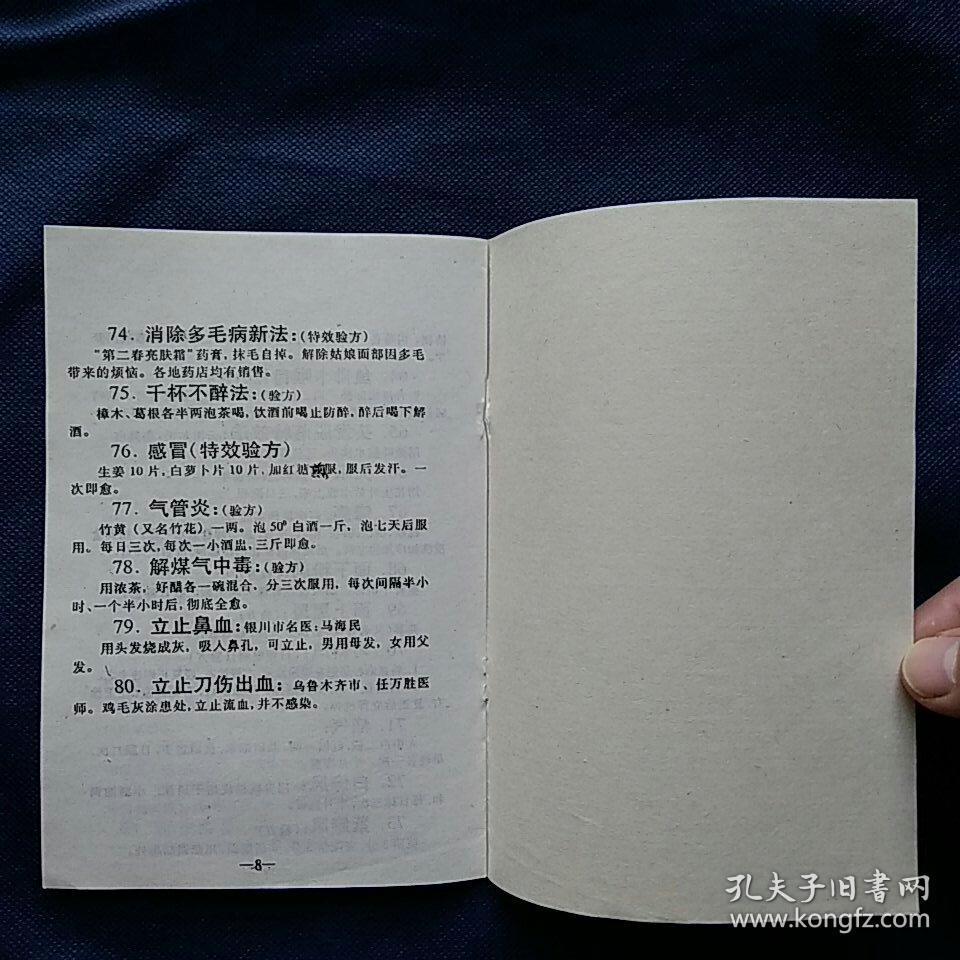 74. 消除多毛病新法:(特效验方)
“第二春亮肤霜”药膏，抹毛自掉。解除姑娘面部因多毛
带来的烦恼。各地药店均有销售。
75. 千杯不醉法:(验方)
樟木、葛根各半两泡茶喝，饮酒前喝止防醉，醉后喝下解
酒。
76. 感冒(特效验方)
生姜10片，白萝卜片10片，加红糖煎服，服后发汗。一
次即愈。
77. 气管炎:(验方)
竹黄（又名竹花）一两。泡50°白酒一斤，泡七天后服
用。每日三次，每次一小酒盅，三斤即愈。
78. 解煤气中毒:(验方)
用浓茶，好醋各一碗混合，分三次服用，每次间隔半小
时、一个半小时后，彻底全愈。
79. 立止鼻血:银川市名医:马海民
用头发烧成灰，吸人鼻孔，可立止，男用母发，女用父
发。
80. 立止刀伤出血: 乌鲁木齐市、任万胜医
师。鸡毛灰涂患处，立止流血，并不感染。
—8—
孔夫子旧書网
www.kongfz.com